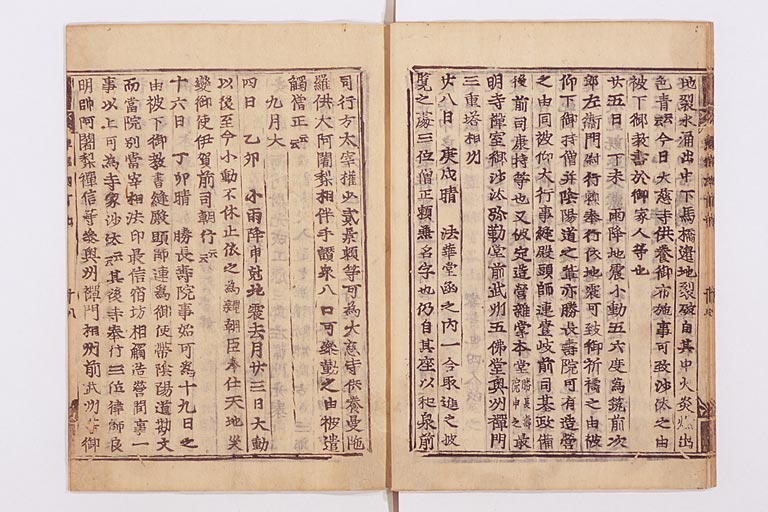 地裂水涌出中下馬橋邊地裂破自其中火炎燃出
色青云云今日大慈寺供養御布施事可致沙汰之由
被下御教書於御家人等也
廿五日 丁未 雨降地震小動五六度爲筑前次
郎左衛門尉行頼奉行依地震可致御祈禱之由被
仰下御持僧并陰陽道之輩亦勝長壽院可有造營
之由同被仰大行事縫殿頭師連壹岐前司基政備
後前司康持等也又仰定造營雜掌本堂勝長壽最
明寺禪室御沙汰弥勒堂前武州五佛堂奥州禪門
三重塔相州
廿八日 庚戌晴 法華堂函之内一合取進之披
覧之處三位僧正頼兼名字也仍自其座以和泉前
司行方太宰權少貳景頼等可爲大慈寺供養曼陁
羅供大阿闍梨相伴手讃衆八口可參勤之由被遣
觸僧正云云
九月大
四日 乙卯 小雨降申尅地震去月廿三日大動
以後至今小動不休止依之爲親朝臣奉仕天地災
變御使伊賀前司朝行云云
十六日 丁卯晴 勝長壽院事始可爲十九日之
由被下御教書縫殿頭師連爲御使帶陰陽道勘文
而當院別當宰相法印最信宿坊相觸造營間事一
事以上可爲寺家沙汰云云其後寺奉行三位律師良
明帥阿闍梨禪信等參奥州禪門相州前武州等御